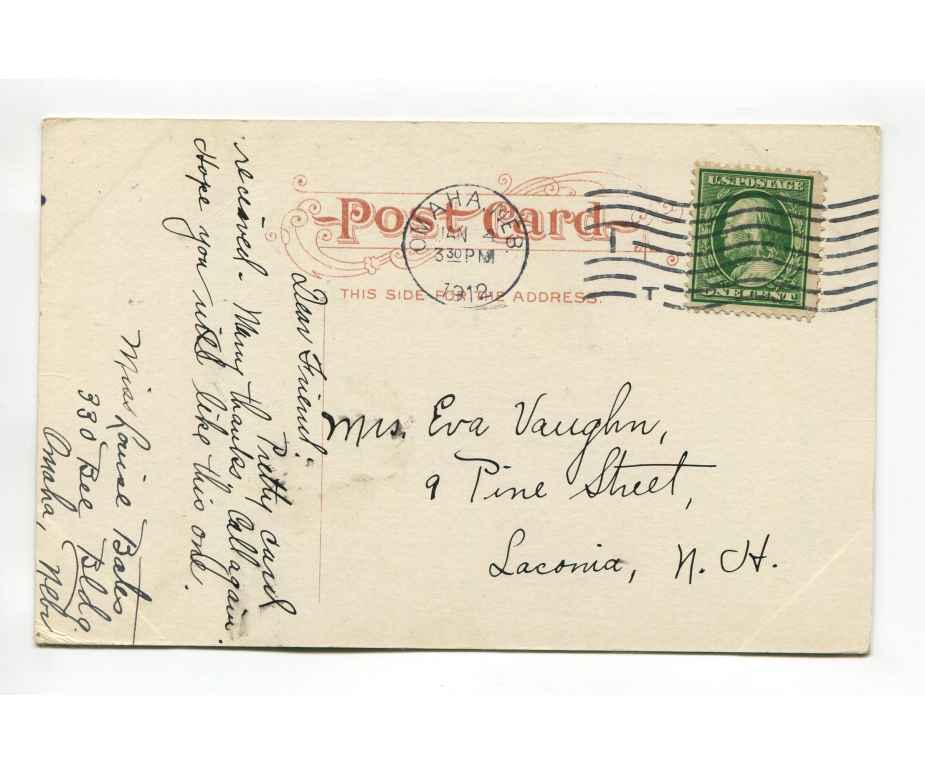 Post Card
THIS SIDE FOR THE ADDRESS.
OMAHA, NEB
JAN 4
3 30 PM
1912
U.S. POSTAGE
ONE CENT
Dear Friend:
Pretty card
received. Many thanks, Call again.
Hope you will like this one.
Miss Louise Bates
330 Bee Bldg
Omaha, Nebr
Mrs. Eva Vaughn,
9 Pine Street,
Laconia, N. H.